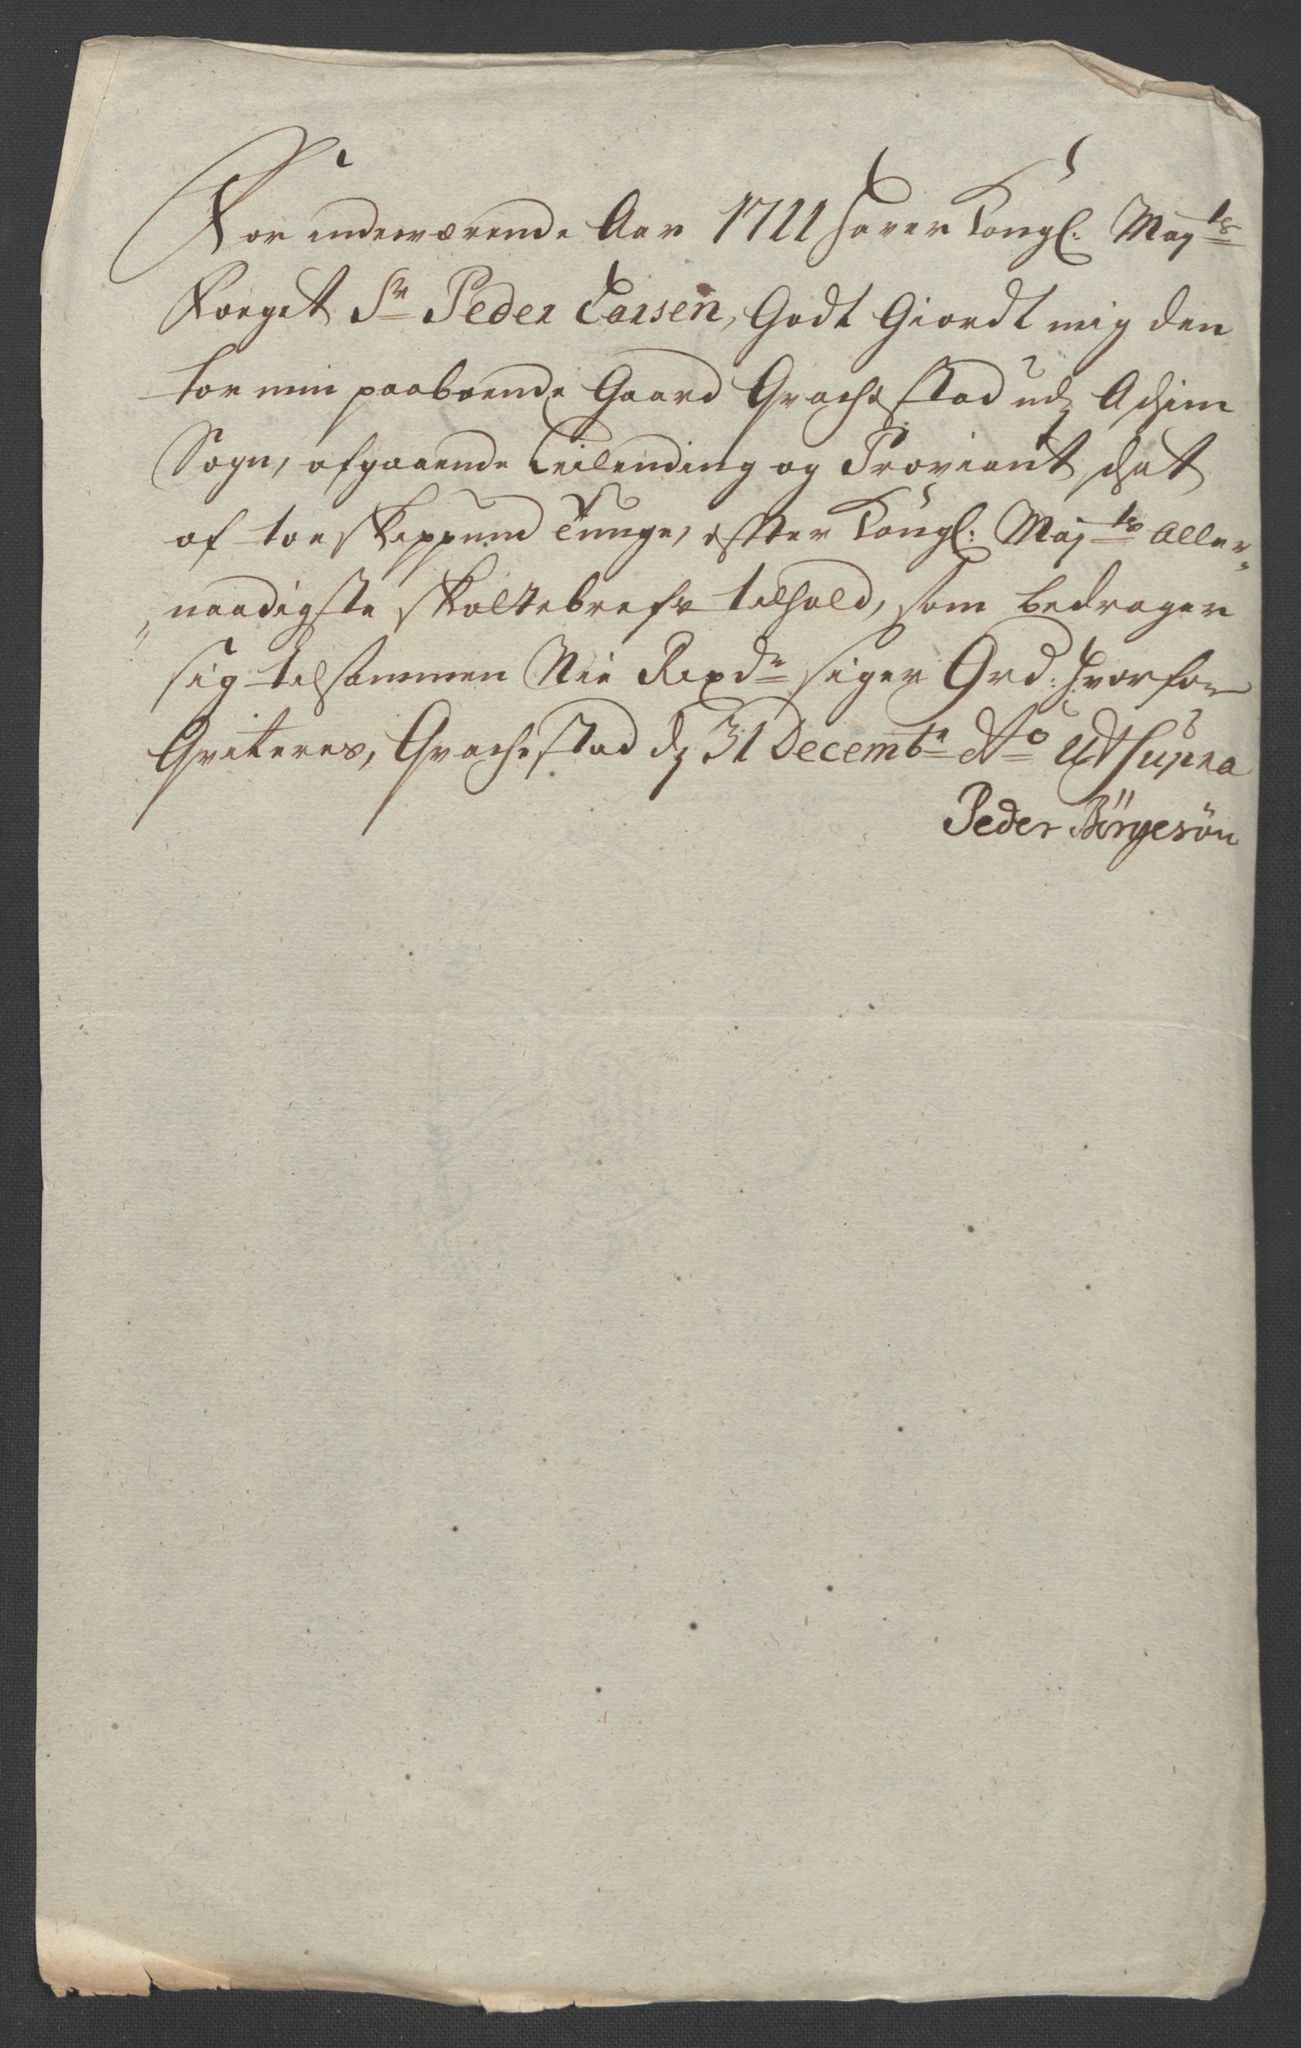 For indeværende Aar 1711 hafver Kongl. Maÿts
Foeget Sr Peder Larsen, Godt Giordt mig den
for min paaboende Gaard Grachestad udj Aschim
Sogn, afgaaende Leilending og Proviant schat
af toe skippund Tunge, effter Kongl: Majts Aller,,
,,naadigste skoltebrefs tilhold, som bedrager
sig tilsammen Nie Rixdr siger 9rd: hvorfor
Qviteres, Grachestad dj 31 Decembr Ao Ut supra
Peder Børgesøn